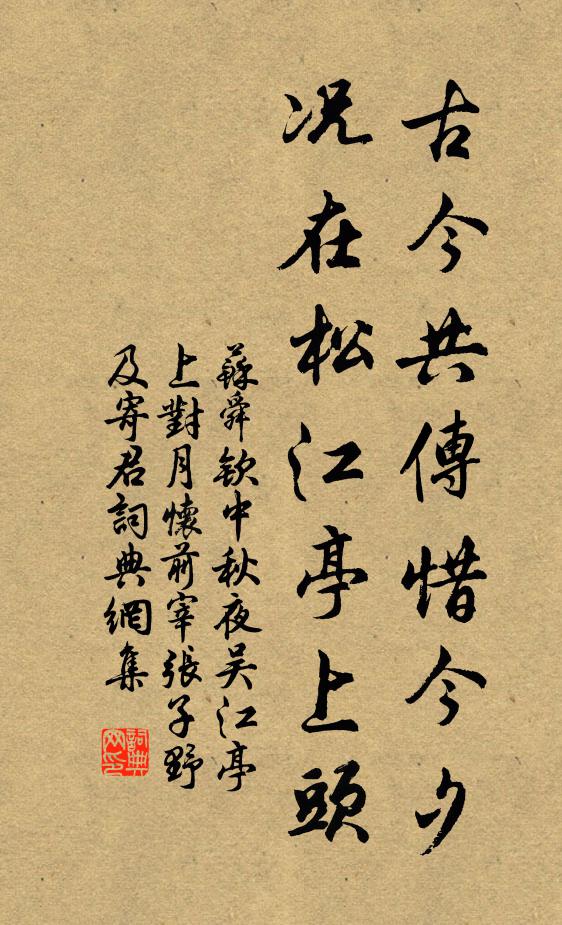 古今共傳惜今夕
况在松江亭上頭
蘇舜欽中秋夜吴江亭
上對月懷前宰張子野
及寄君詞典網集
詞典
网印